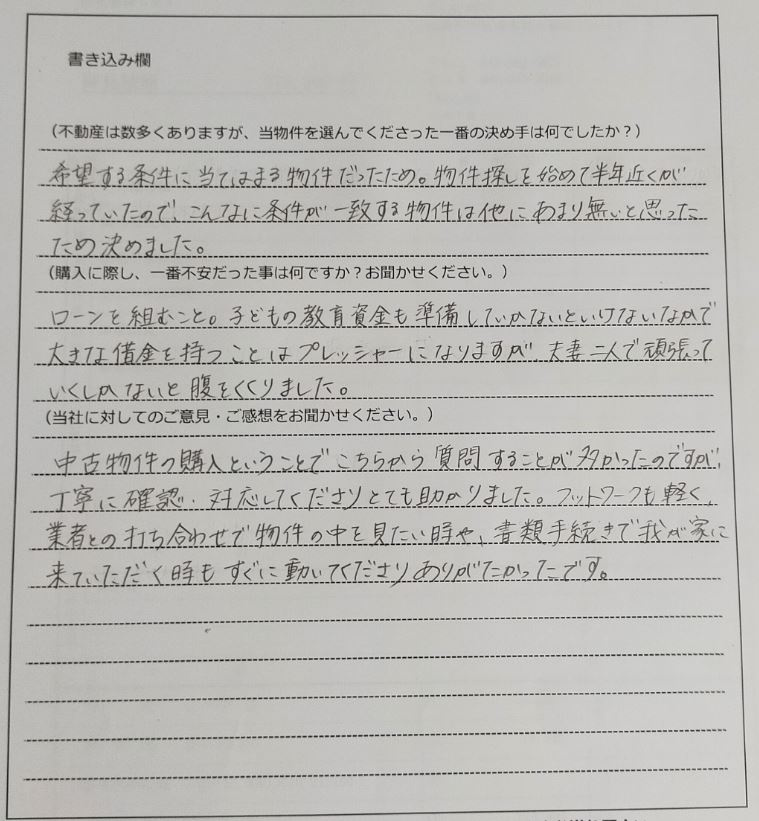 書き込み欄
（不動産は数多くありますが、当物件を選んでくださった一番の決め手は何でしたか？）
希望する条件に当てはまる物件だったため。物件探しを始めて半年近くが
経っていたので、こんなに条件が一致する物件は他にあまり無いと思った
ため決めました。
（購入に際し、一番不安だった事は何ですか？お聞かせください。）
ローンを組むこと。子どもの教育資金も準備していかないといけないなかで
大きな借金を持つことはプレッシャーになりますが、夫妻二人で頑張って
いくしかないと腹をくくりました。
（当社に対してのご意見・ご感想をお聞かせください。）
中古物件の購入ということでこちらから質問することが多かったのですが、
丁寧に確認、対応してくださりとても助かりました。フットワークも軽く、
業者との打ち合わせで物件の中を見たい時や、書類手続きで我が家に
来ていただく時もすぐに動いてくださりありがたかったです。